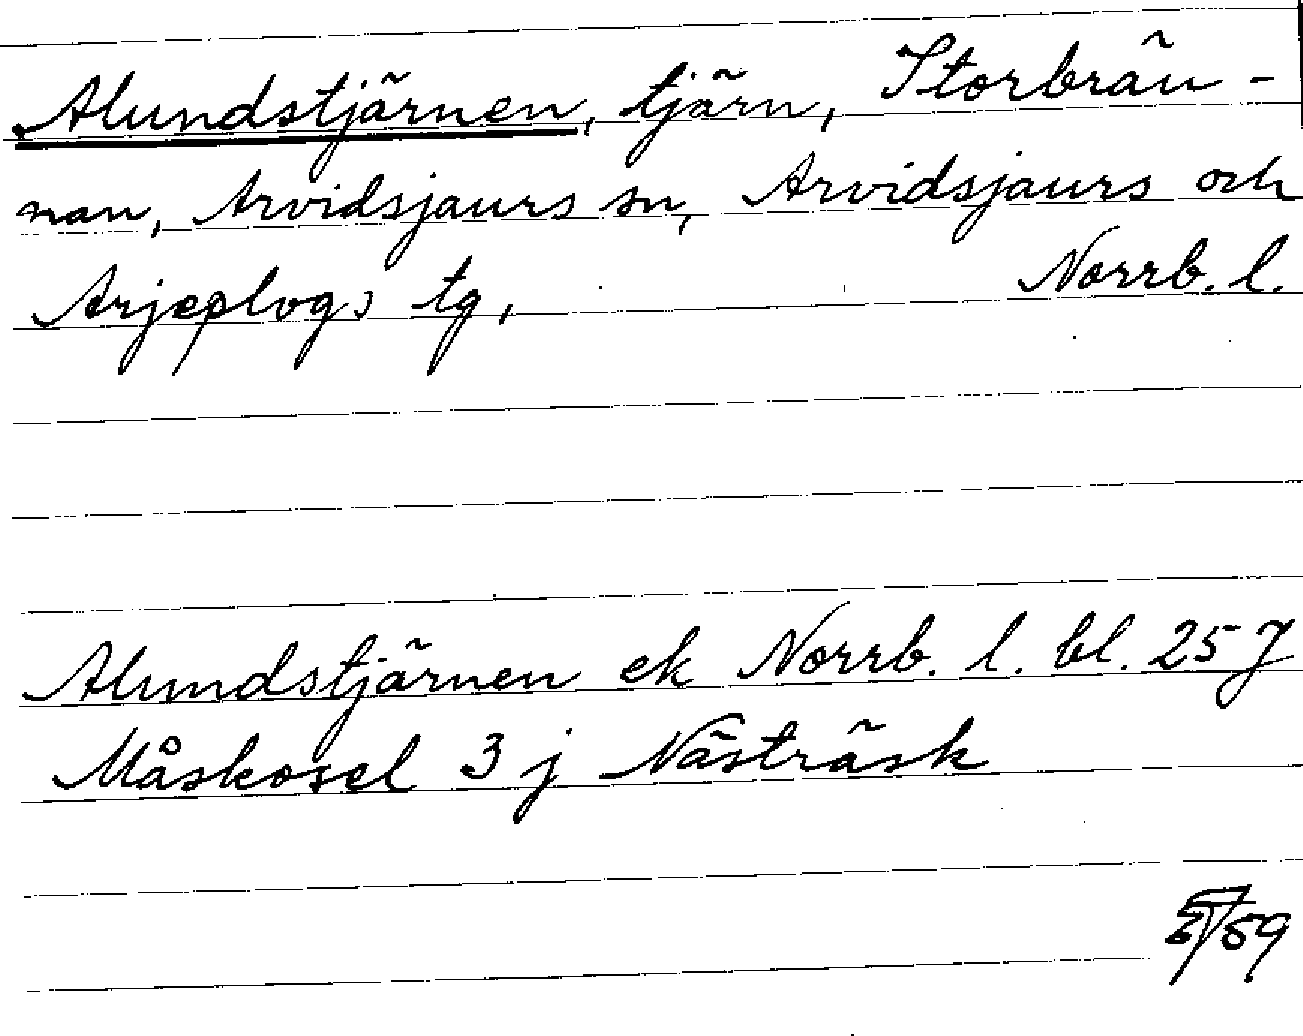 Alundstjärnen, tjärn, Storbrän-
nan, Arvidsjaurs sn, Arvidsjaurs och
Arjeplogs tg, Norrb. l.
Alundstjärnen ek Norrb. l. bl. 25 J
Måskosel 3 j Nästräsk